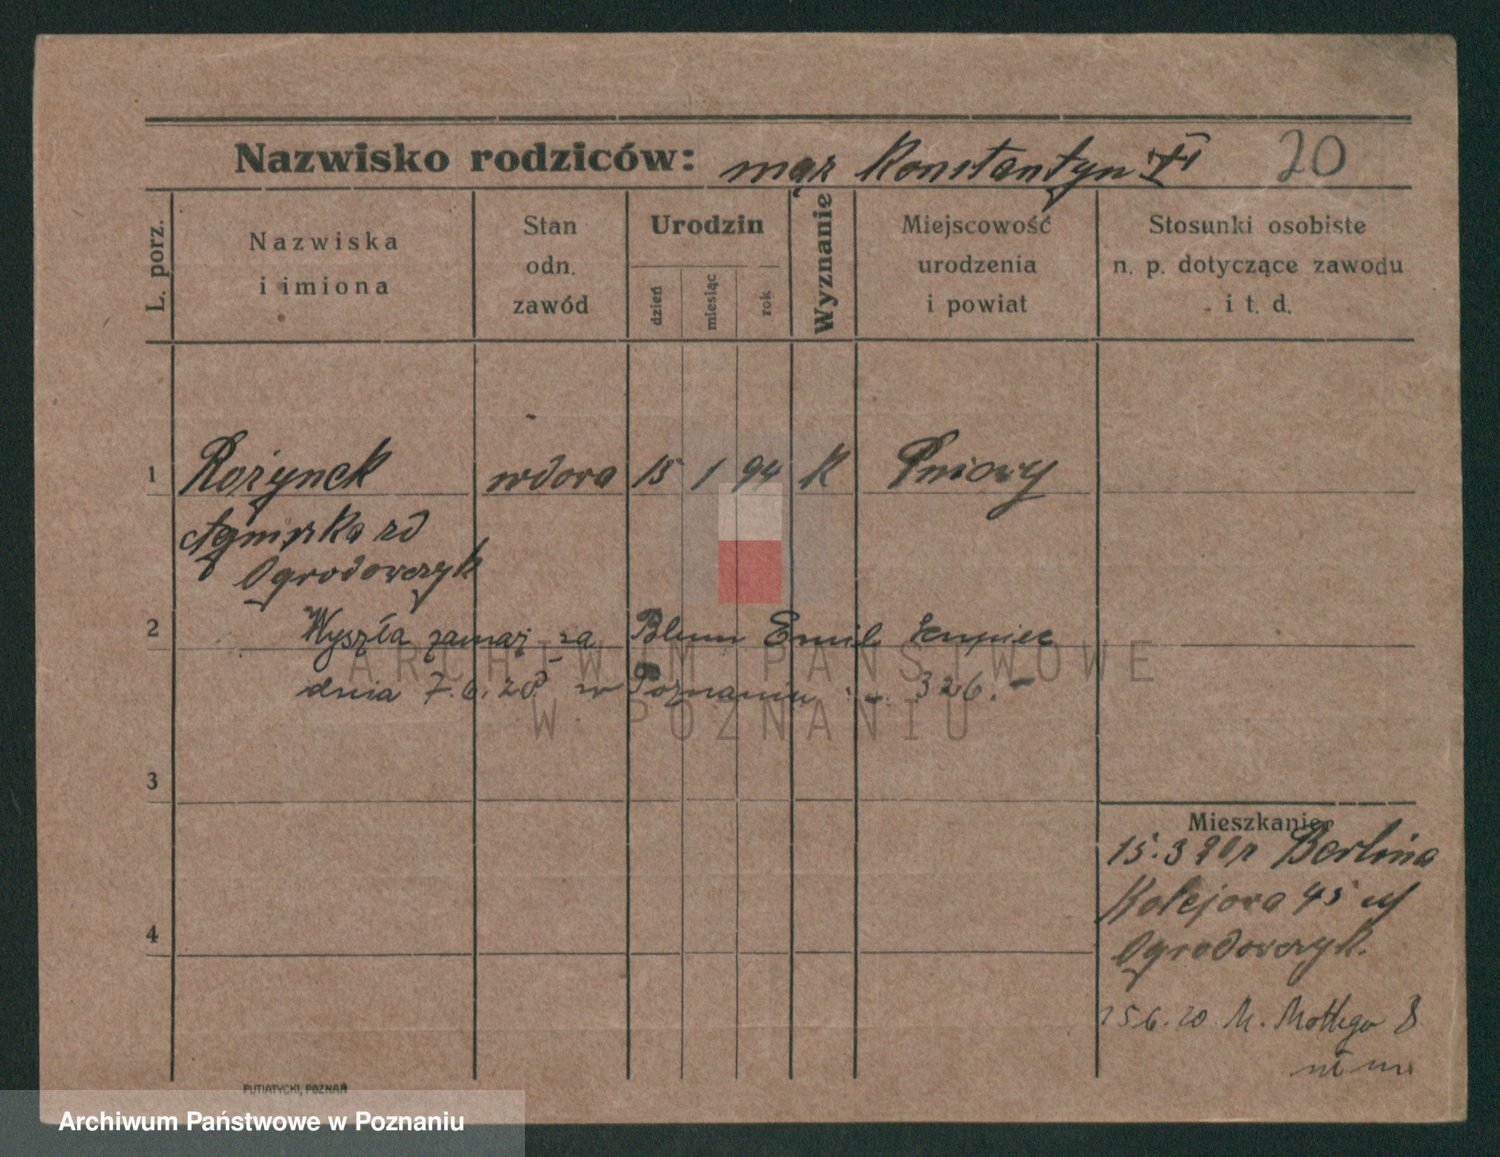 Nazwisko rodziców: mąż Konstantyn 20
L. porz.
Nazwiska i imiona
Stan odn. zawód
Urodzin
dzień
miesiąc
rok
Wyznanie
Miejscowość urodzenia i powiat
Stosunki osobiste n. p. dotyczące zawodu i t. d.
1 Rożynek wdowa 15 1 94 K Pniewy
Agniszka zd
Ogrodowczyk
2 Wyszła zamąż za Blum Emil kupiec
dnia 7.6.20 w Poznaniu 326.-
ARCHIWUM PAŃSTWOWE
W POZNANIU
3
Mieszkanie
15.3 20 r Berlina
Kolejowa 45 u
Ogrodowczyk.
4
25 6.20. M. Mottego 8
PUTIATYCKI, POZNAŃ
Archiwum Państwowe w Poznaniu